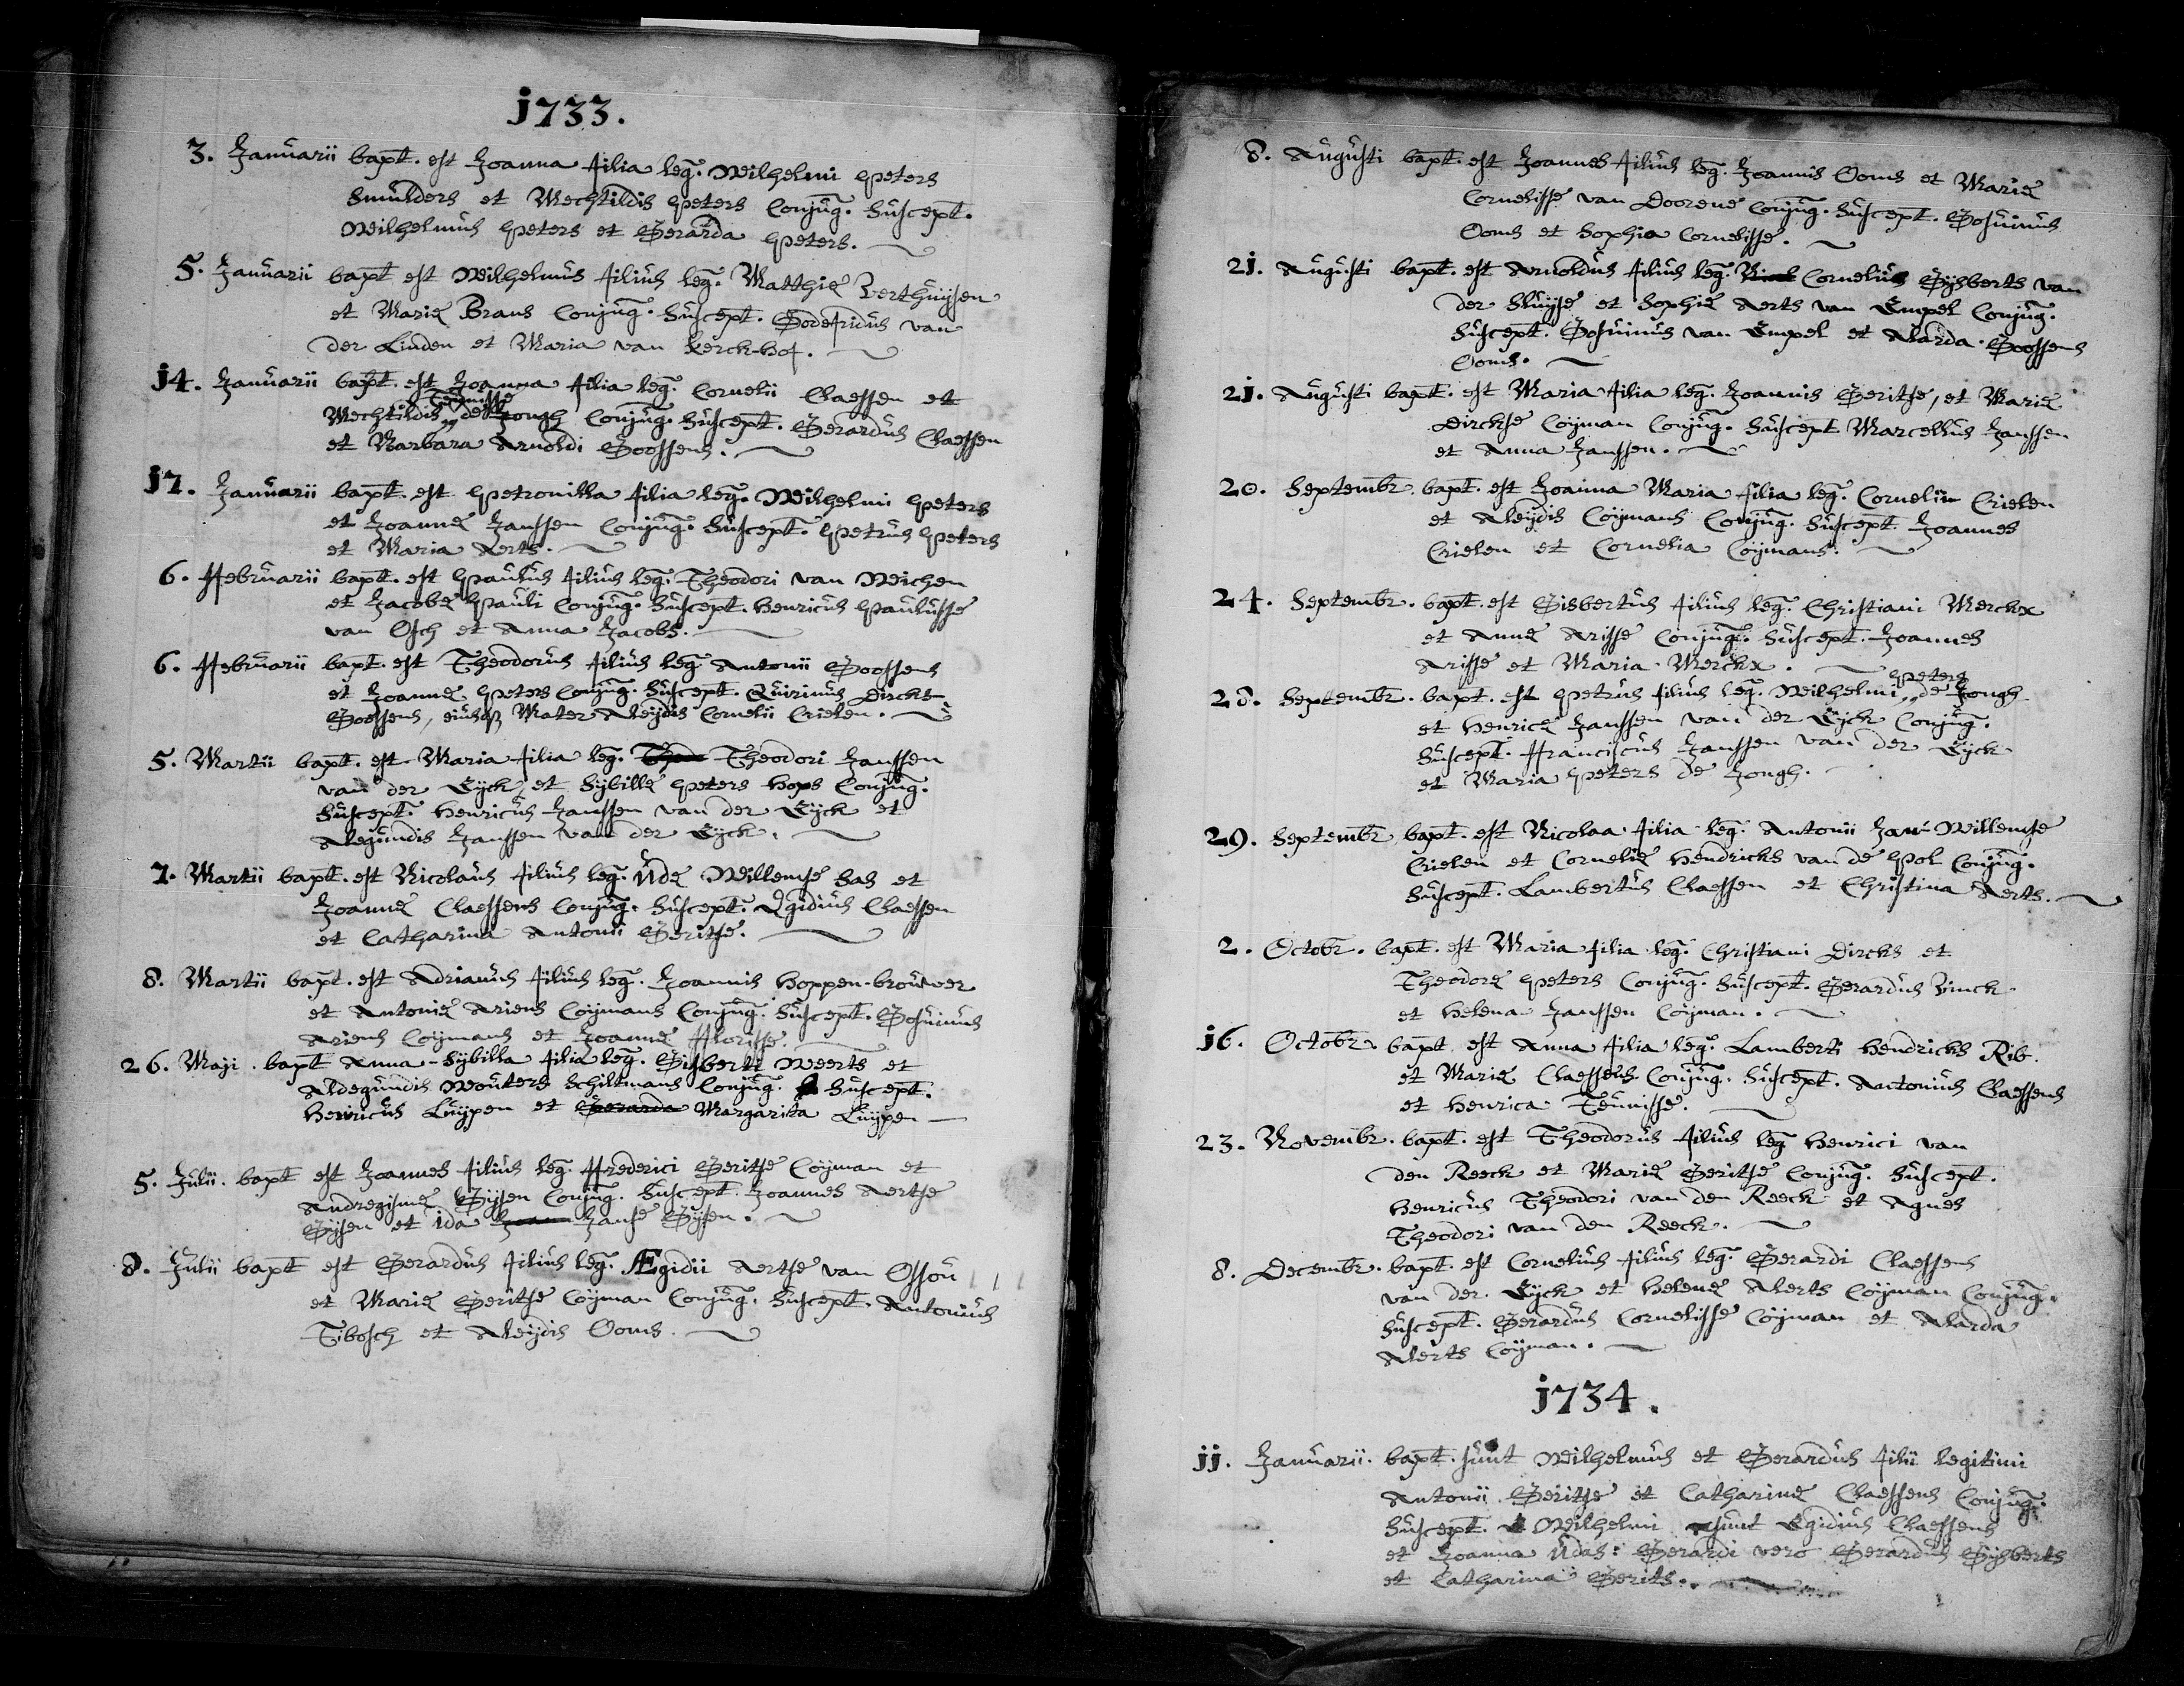 j733.
3. Januarii bapt. est Joanna filia leg. Wilhelmi Peters
Smulders et Mechtildis Peters Conjug. Suscept.
Wilhelmus Peters et Gerarda Peters.
5. Januarii bapt est Wilhelmus filius leg. Matthiæ Verthuijsen
et Mariæ Brans Conjug. Suscept. Godefridus van
der Linden et Maria van kerck-hof.
j4. Januarii bapt. est Joanna filia leg. Cornelii Claessen et
Teunisse
Mechtildis de Jongh Conjug. Suscept. Gerardus Claessen
et Barbara Arnoldi Goossens.
j7. Januarii bapt. est Petronilla filia leg. Wilhelmi Peters
et Joannæ Janssen Conjug. Suscept. Petrus Peters
et Maria Aerts.
6. Februarii bapt. est Paulus filius leg. Theodori van Wichen
et Jacobæ Pauli Conjug. Suscept. Henricus Paulusse
van Osch et Anna Jacobs.
6. Februarii bapt. est Theodorus filius leg Antonii Goossens
et Joannæ Peters Conjug. Suscept. Quirinus Dircks
Goossens, eiusq Mater Aleijdis Cornelii Crielen.
5. Martii bapt. est Maria filia leg. Theodori Janssen
van der Eijck, et Sijbillæ Peters Hops Conjug.
Suscept. Henricus Janssen van der Eijck et
Alegundis Janssen van der Eijck.
7. Martii bapt. est Nicolaus filius leg. Udæ Willemse Bas et
Joannæ Claessens Conjug. Suscept. Ægidius Claessen
et Catharina Antonii Geritse.
8. Martii bapt. est Adrianus filius leg. Joannis Hoppen-brouwer
et Antoniæ Ariens Coijmans Conjug. Suscept. Gosuinus
Ariens Coijmans et Joannæ Florisse.
26. Maji. bapt Anna-Sijbilla filia leg. Gisberti Weerts et
Aldegundis Wouters Schiltmans Conjug. Suscept.
Henricus Luijpen et Gerarda Margarita Luijpen
5. Julii. bapt est Joannes filius leg. Frederici Geritse Coijman et
Andregismæ Gijsen Conjug. Suscept. Joannes Aertse
Gijsen et ida Janse Gijsen.
8. Julii bapt est Gerardus filius leg. Ægidii Aertse van Ossou
et Mariæ Geritse Coijman Conjug. Suscept. Antonius
Tibosch et Aleijdis Ooms.
8. Augusti bapt. est Joannes filius leg. Joannis Ooms et Mariæ
Cornelisse van Doorene Conjug. Suscept. Gosuinus
Ooms et Sophia Cornelisse.
2j. Augusti bapt. est Arnoldus filius leg. Cornelius Gijsberts van
der Sluijse et Sophiæ Aerts van Empel Conjug.
Suscept. Gosuinus van Empel et Alarda Goossens
Ooms.
2j. Augusti bapt. est Maria filia leg. Joannis Geritse, et Mariæ
Dirckse Coijman Conjug. Suscept Marcellus Janssen
et Anna Janssen.
20. Septembr. bapt. est Joanna Maria filia leg. Cornelii Crielen
et Aleijdis Coijmans Conjug. Suscept Joannes
Crielen et Cornelia Coijmans.
24. Septembr. bapt. est Gisbertus filius leg. Christiani Merckx
et Annæ Arisse Conjug. Suscept. Joannes
Arisse et Maria Merckx.
Peters
28. Septembr. bapt. est Petrus filius leg. Wilhelmi de Jongh
et Henricæ Janssen van der Eijck Conjug.
Suscept. Franciscus Janssen van der Eijck
et Maria Peters de Jongh.
29. Septembr. bapt. est Nicolaa filia leg. Antonii Jan-Willemse
Crielen et Corneliæ Hendricks van de Pol Conjug.
Suscept. Lambertus Claessen et Christina Aerts.
2. Octobr. bapt. est Maria filia leg. Christiani Dircks et
Theodoræ Peters Conjug. Suscept. Gerardus Vinck
et Helena Janssen Coijman.
j6. Octobr. bapt est Anna filia leg. Lamberti Hendricks Rib.
et Mariæ Claessens Conjug. Suscept. Antonius Claessens
et Henrica Teunisse.
23. Novembr. bapt. est Theodorus filius leg Henrici van
den Reeck et Mariæ Geritse Conjug. Suscept.
Henricus Theodori van den Reeck et Agnes
Theodori van den Reeck.
8. Decembr. bapt. est Cornelius filius leg. Gerardi Claessens
van der Eijck et Helenæ Alerts Coijman Conjug.
Suscept. Gerardus Cornelisse Coijman et Alarda
Alerts Coijman.
j734.
jj. Januarii. bapt. sunt Wilhelmus et Gerardus filii legitimi
Antonii Geritse et Catharinæ Claessens Conjug.
Suscept. Wilhelmi sunt Egidius Claessens
et Joanna Udas: Gerardi vero Gerardus Gijsberts
et Catharina Gerits.